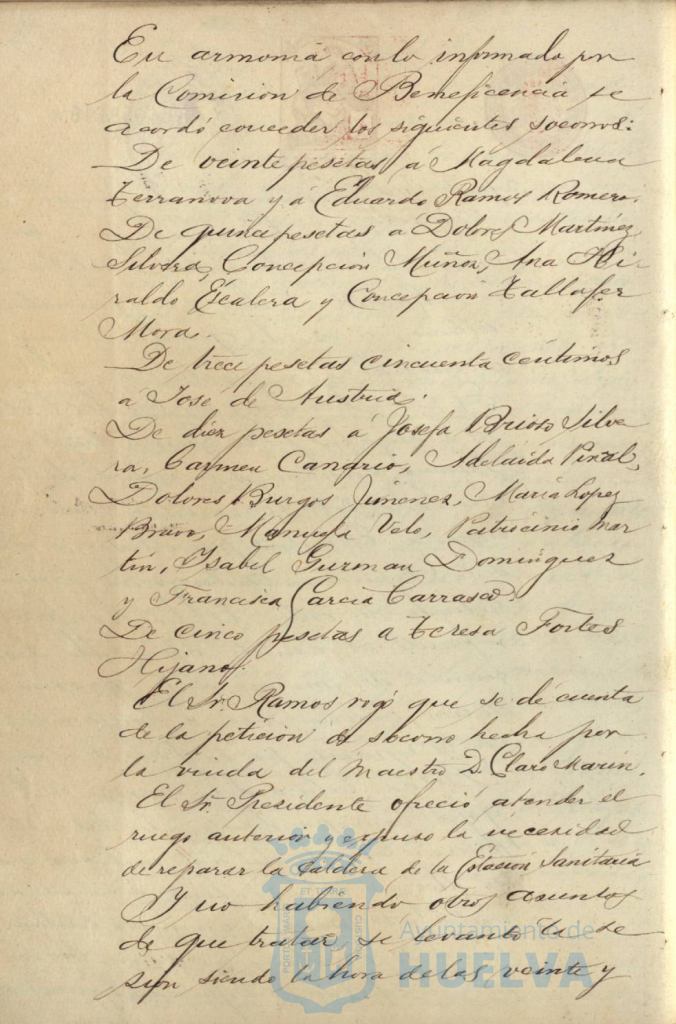 En armonia con lo informado por
la Comision de Beneficencia se
acordó conceder los siguientes socorros:
De veinte pesetas á Magdalena
Terranova y á Eduardo Ramos Romero.
De quince pesetas á Dolores Martinez
Silvera, Concepcion Muñoz, Ana Hi-
raldo Escalera y Concepcion Tallafer
Mora.
De trece pesetas cincuenta centimos
á José de Austria.
De diez pesetas á Josefa Brioso Silve
ra, Carmen Canario, Adelaida Peral,
Dolores Burgos Jimenez, María Lopez
Bravo, Manuela Velo, Patrocinio Mar
tin, Isabel Guzman Dominguez
y Francisca Garcia Carrasco.
De cinco pesetas a Teresa Fortes
Hijano.
El Sr. Ramos rogó que se dé cuenta
de la peticion de socorro hecha por
la viuda del Maestro D. Claro Marin.
El Sr. Presidente ofreció atender el
ruego anterior y expuso la necesidad
de reparar la Caldera de la Estacion Sanitaria
Y no habiendo otros asuntos
de que tratar, se levantó la se
sion siendo la hora de las veinte y
Ayuntamiento de
HUELVA